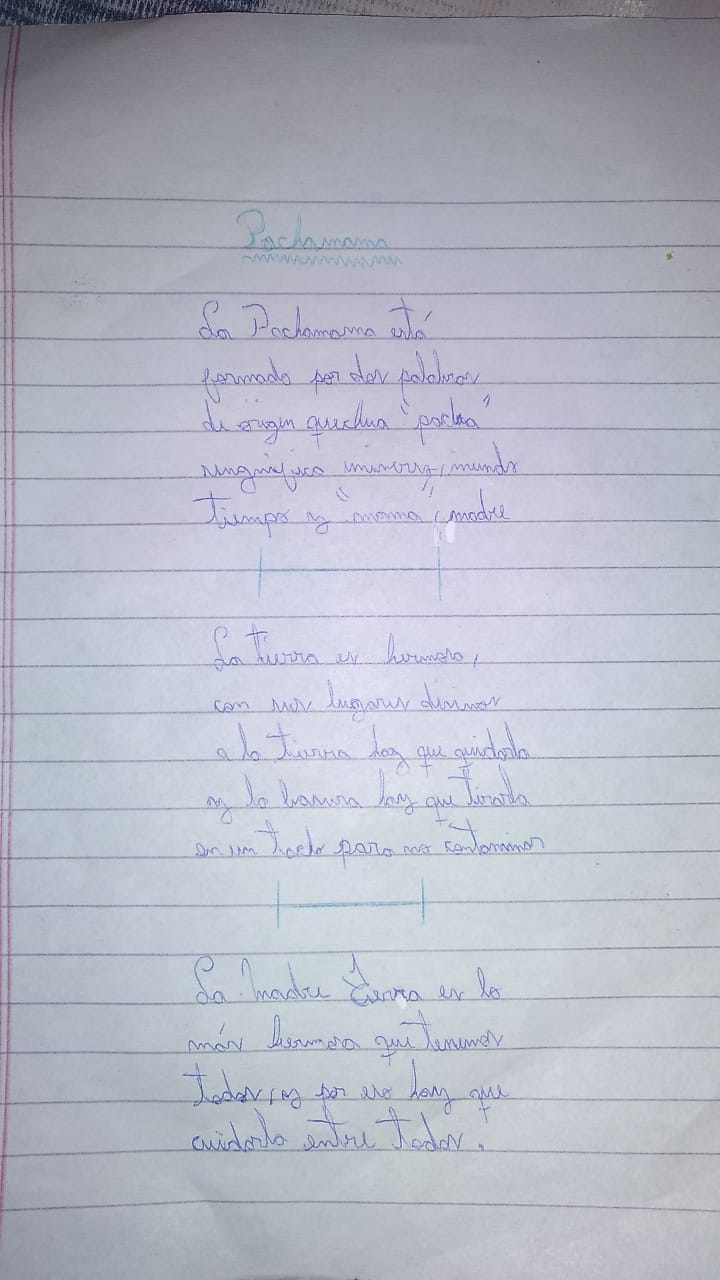 Pachamama
La Pachamama está
formado por dos palabras
de origen quechua "pacha"
singnifica universo, mundo
tiempo y "mama", madre
La tierra es hermosa,
con sus lugares divinos
a la tierra hay que quidarla
y la basura hay que tirarla
en un tacho para no contaminar
La Madre Tierra es lo
más hermoso que tenemos
todos, y por eso hay que
cuidarla entre todos.